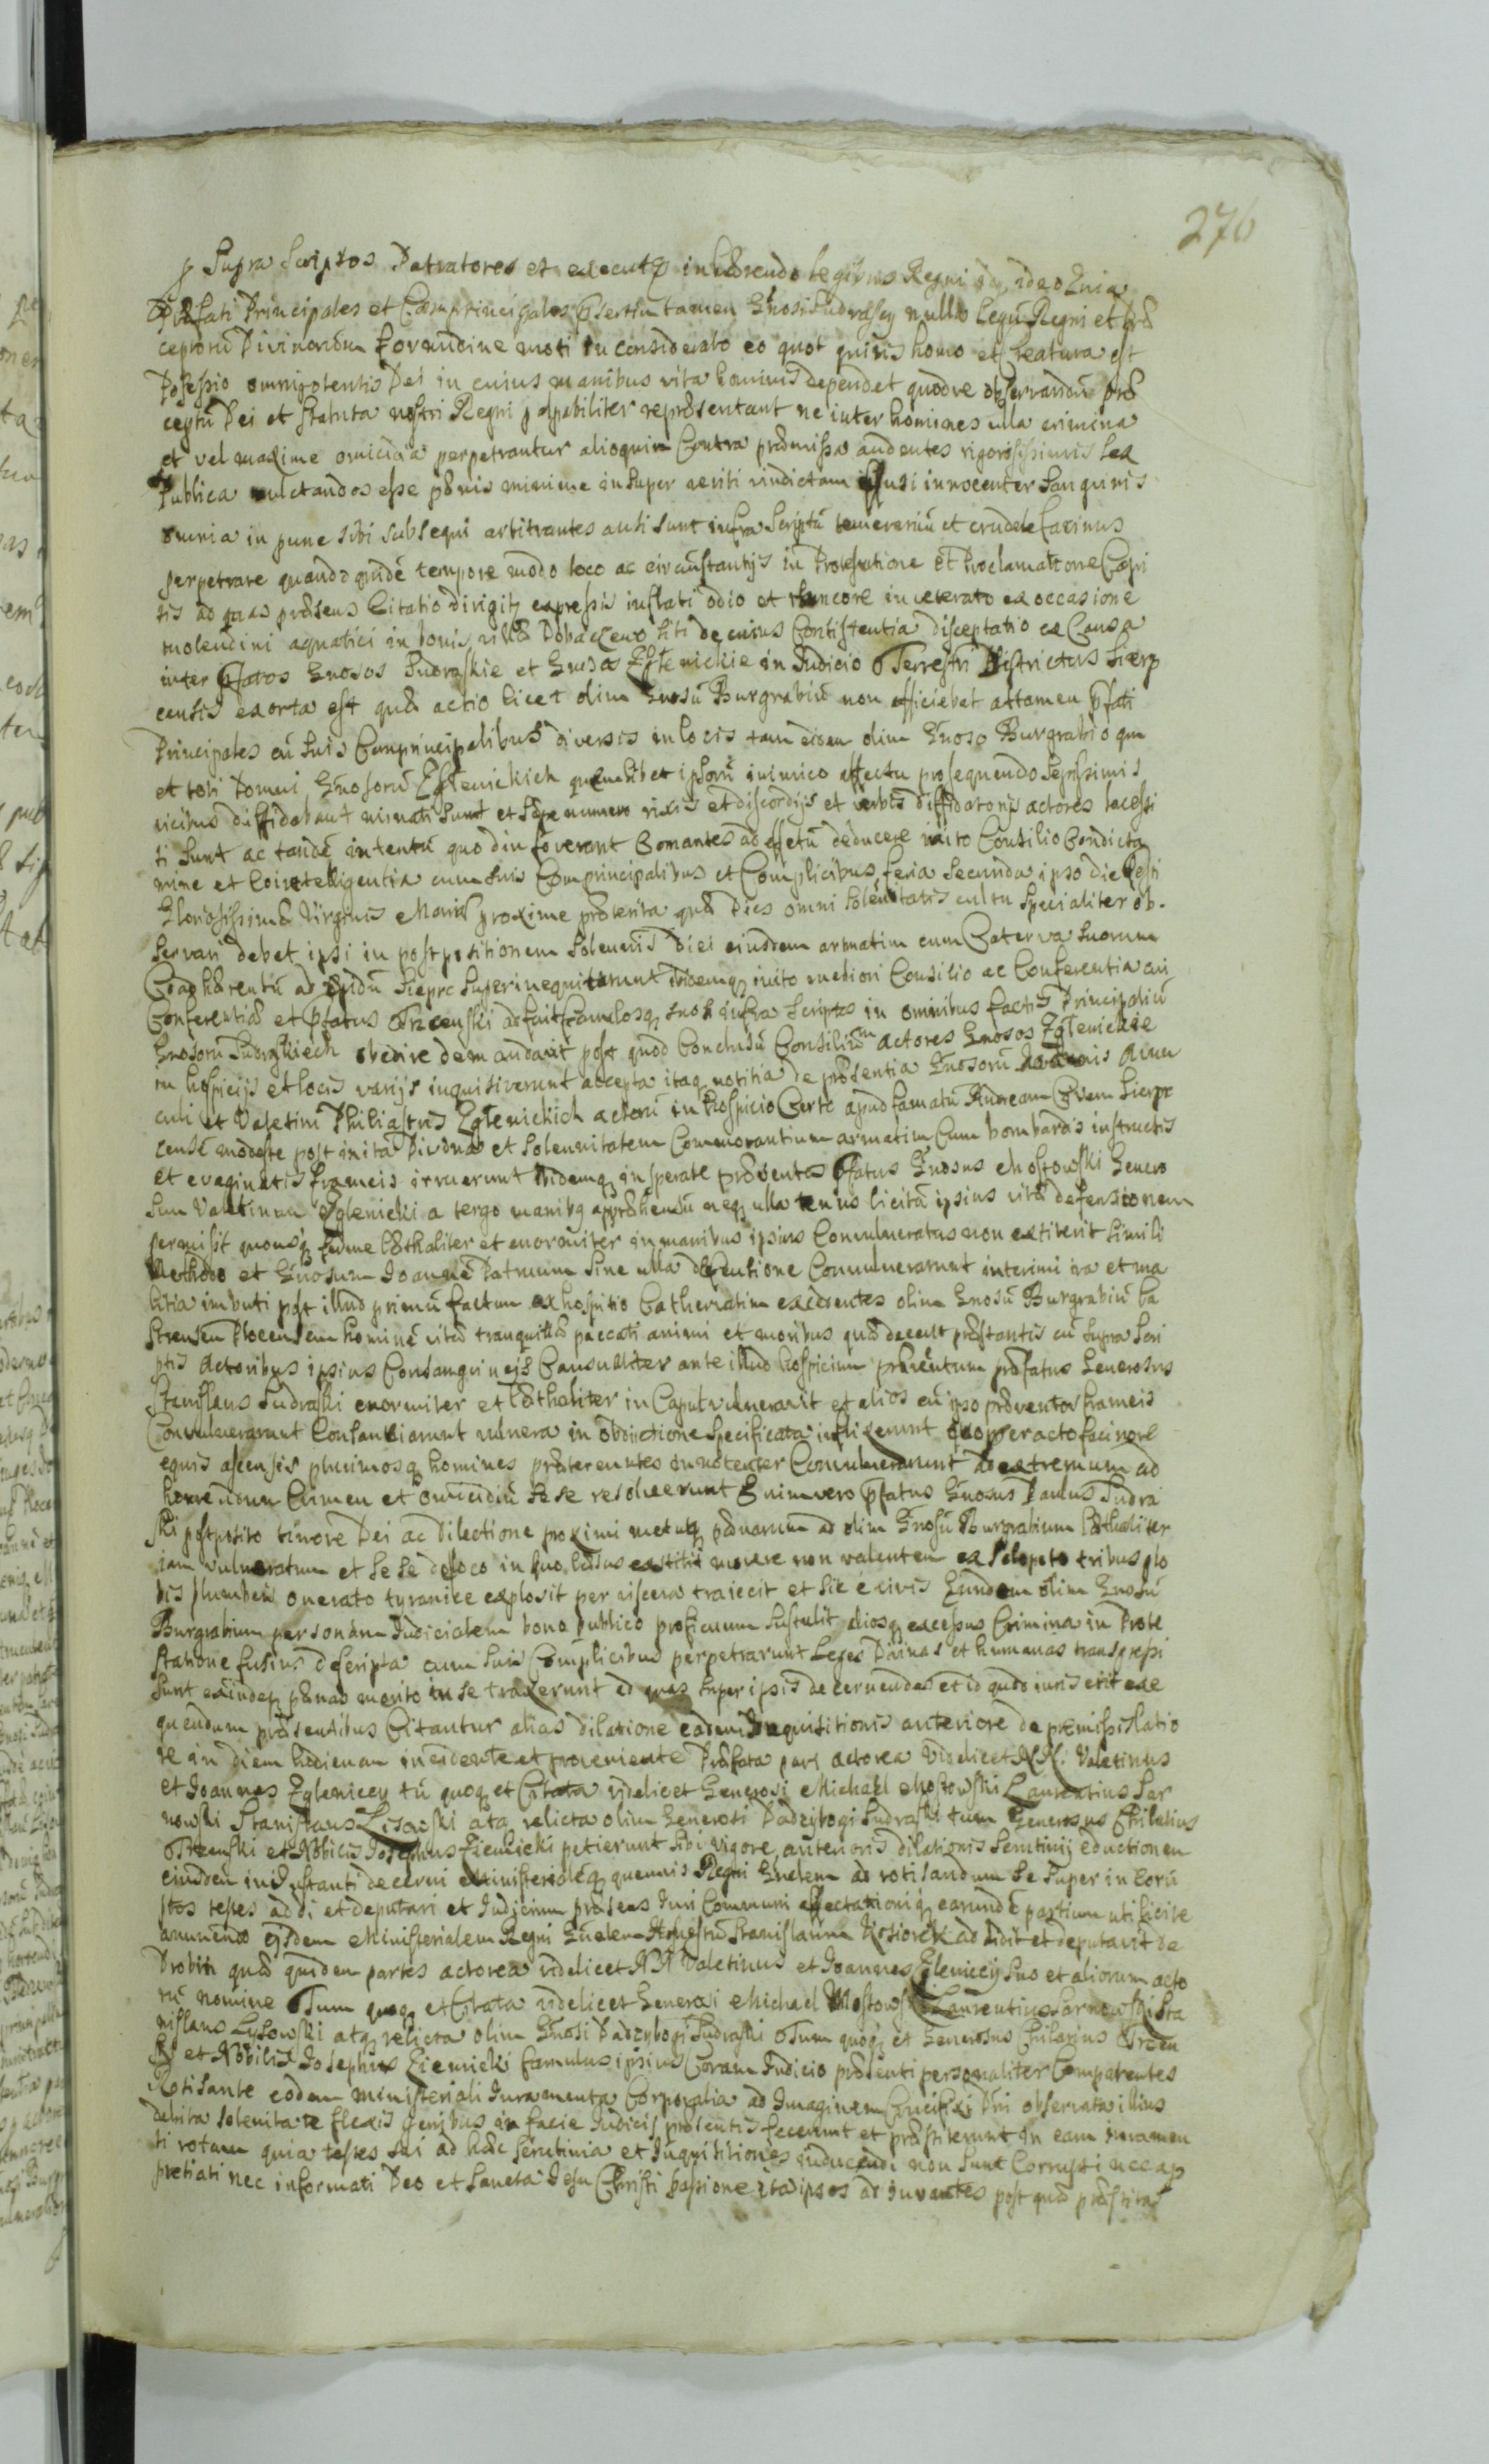 276
p Supra Scriptos Patratores et executos inhærendo legibus Regni ideo Quia
Præfati Principales et Comprincipales pñsertim tamen Gñosi Sudrascy nullo Legũ Regni et Præ
ceptorũ Divinorum formidine moti in considerato eo quot quivis homo et Creatura est
Possessio omnipotentis Dei in cuius manibus vita hominis dependet quodve observandũ Præ
ceptũ Dei et Statuta nostri Regni palpabiliter repræsentant ne inter homines ulla crimina
et vel maxime omicidia perpetrantur alioquin Contra præmissa audentes rigorosissimis Lex
Publica mulctandos esse pænis minime insuper veriti vindictam effusi innocenter Sanguinis
omnia in pune sibi subsequi arbitrantes ausi sunt infra Scriptũ temerariũ et crudele facinus
perpetrare quando quidẽ tempore modo loco ac circũstantijs in Protestatione et Proclamatione Copi
tis ad quas præsens Citatio dirigitq expressis inflati odio et rancore inveterato ex occasione
molendini aquatici in bonis villæ Dobaczewo siti de cuius Consistentia disceptatio ex Causa
inter pfatos Gnosos Sudraskie et Gnosos Zglenickie in Judicio Terrestri Districtus Sierp
censis exorta est quæ actio licet olim Gnosũ Burgrabiũ non afficiebat attamen pfati
Principales cũ suis Comprincipalibus diversis in locis tam eidem olim Gnoso Burgrabio qm
et toti Domui Gnosorũ Zglenickich quemlibet ipsorũ inimico affectu prosequendo sepissimis
vicibus diffidabant minati sunt et sæpe numero rixis et discordijs et verbis diffidatorijs actores lacessi
ti sunt ac tandẽ intentũ quo diu foverant Conantes ad effetũ deducere inito Consilio Condicta
mine et Cointelligentia cum suis Comprincipalibus et Complicibus feria Secunda ipso die Festi
Gloriosissimæ Virginis Mariæ proxime præterita quæ Dies omni solenitatis cultu specialiter ob-
servari debet ipsi in postpositionem solennis Diei eiusdem armatim cum Caterva suorum
Coadhærentũ ad opidũ Sieprc superinequitarunt ibidemq inito mediori Consilio ac Conferentia cui
Conferentiæ et Pfatus Trzcenski adfuit famulosq suos infra Scriptos in omnibus factis Principaliũ
Gnosorũ Sudraskiech obedire demandavit post quod Conclusũ Consilium actores Gnosos Zglenickie
in hospicijs et locis varijs inquisiverunt accepta itaq notitia de præsentia Gnosorũ Joannis Avun
culi et Valetini Philiastris Zglenickich actorũ in hospicio Certo apud famatũ Civem Sierpc
censẽ modeste post inita Divina et solennitatem Commorantium armatim Cum bombardis instructis
et evaginatis frameis irruerunt ibidemq insperate præventos Pfatus Gnosus Mostowski Genero
sum Valetinum Zglenicki a tergo manibq appræhensũ neq ulla tenus licitã ipsius vitæ defensionem
permisit quousq ferme læthaliter et enormiter in manibus ipsius Convulneratus non extiterit simili
Methodo et Gnosum Joannẽ Patruum sine ulla defensione Convulnerarunt interimi ira et ma
litia imbuti post illud primũ factum ex hospitio Cathervatim exeuntes olim Gnosũ Burgrabiũ Ca
strensem Plocensem hominẽ vitæ tranquillæ paccati animi et moribus quæ decent præstantis cũ supra Scri
ptis Actoribus ipsius Consanguineis Causualiter ante illud hospicium præventum præfatus Generosus
Stanislaus Sudraski enormiter et Læthaliter in Caput vulneravit et alios cũ ipso præventos frameis
Convulnerarunt Consauciarunt vulnera in obdutione specificata inflixerunt quo peracto facinore
equis ascensis plurimosq homines prætereuntes innotenter Convulnerarunt ad extremum ad
horrendum Crimen et omicidiũ se se resolverunt Enimvero Pfatus Gnosus Paulus Sudra
ski postposito timore Dei ac Dilectione proximi metuq pænarum ad olim Gnosũ Burgrabium Læthaliter
iam vulneratum et se se de loco in quo læsus exstitit movere non valentem ex Sclopeto tribus glo
bis plumbeis onerato tyranice explosit per viscera traiecit et sic e vivis Eundem olim Gnosũ
Burgrabium personam Judicialem bono publico proficuum sustulit aliosq excessus Crimina in Prote
statione fusius descripta cum suis Complicibus perpetrarunt Leges Divinas et humanas transgressi
sunt exindeq pænas merito in se traxerunt ad quas super ipsis decernendas et id quod iuris erit exe
quendum præsentibus Citantur alias dilatione eadem Inquisitionis anteriore de præmissis latio
re in diem hodiernam incidente et proveniente Præfata pars actorea videlicet NN: Valetinus
et Joannes Zgleniccy tũ quoq et Citata videlicet Generosi Michael Mostowski Laurentius Sar
nowski Stanislaus Lisowski atq relicta olim Generosi Padzybogi Sudraski tum Generosus Chilarius
Trzcenski et Nobilis Josephus Ziemicki petierunt sibi vigore anterioris dilationis Scrutinij eductionem
eiusdem indistanti decerni Ministerialemq quemvis Regni Gnalem ad rotisandum se super ineorũ
stos testes addi et deputari et Judicium præsens Iuri Communi affectationiq earundẽ partium uti licite
annuendo eisdem Ministerialem Regni Gnalem Honestũ Stanislaum Kosiorek addidit et deputavit de
Drobin quæ quidem partes actorea videlicet NN Valetinus et Joannes Zgleniccy suo et aliorum acto
rũ nomine Tum quoq et Citata videlicet Generosi Michael Mostowski Laurentius Sarnowski Sta
nislaus Lysowski atq relicta olim Gnosi Padzybogi Sudraski Tum quoq et Generosus Chilarius Trzcen
ski et Nobilis Josephus Ziemicki famulus ipsius Coram Judicio præsenti personaliter Comparentes
Rotisante eodem ministeriali Juramenta Corporalia ad Imaginem Crucifixi Dni observata illius
debita solenitate flexis genibus in facie Judicij præsentis fecerunt et præstiterunt in eam iuramen
ti rotam quia testes sui ad hæc Scrutinia et Inquisitiones inducendi non sunt Corrupti nec ap
pretiati nec informati Deo et Sancta Jesu Christi passione ita ipsos ad iuvantes post quæ præstita